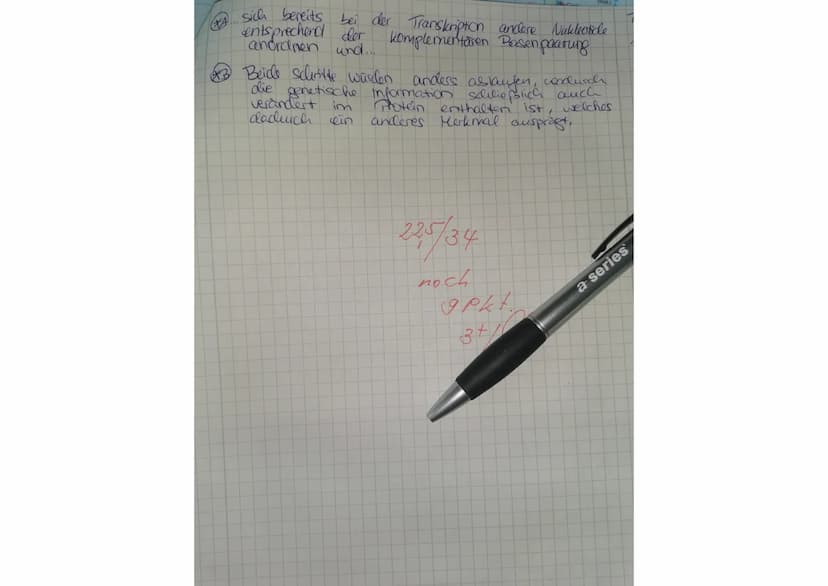 *1 sich bereits bei der Transkription andere Nukleotide
entsprechend der komplementären Basenpaarung
anordnen und...
*2 Beide Schritte würden anders ablaufen, wodurch
die genetische Information schließlich auch
verändert im Protein enthalten ist, welches
dadurch ein anderes Merkmal ausprägt.
22,5/34
noch
9 Pkt.
3+/
a series